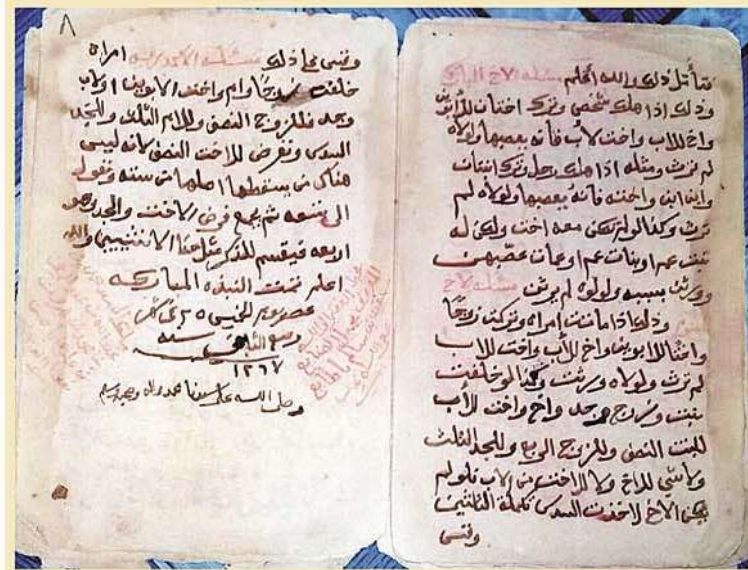 فتأمل ذلك والله اعلم مسئلة الاخ المبارك
وذلك اذا هلك شخص وترك اختان للابوين
واخ للاب واخت لاب فانه يعصبها ولولاه
لم ترث ومثله اذا هلك رجل وترك ابنتان
وابن ابن واخته فانه يعصبها ولولاه لم
ترث وكذا لو لم تكن معه اخت ولكن له
بنت عم او بنات عم او عمات عصبهن
وورثن بسببه ولولاه لم يرثن مسئلة الاخ
وذلك اذا ماتت امراة وتركت زوجا
واختا للابوين واخ للأب واخت للاب
لم ترث ولولاه ورثت وكذا لو خلفت
بنت وزوج وجد واخ واخت للأب
للبنت النصف وللزوج الربع وللجد الثلث
ولا شي للاخ ولا للاخت من الاب فلو لم
يكن الاخ لاخذت السدس تكملة الثلثين
وقسى
٨
وقسى على ذلك مسئلة الاكدرية امراة
خلفت زوجا وام واخت لابوين او لاب
وجد فللزوج النصف وللام الثلث وللجد
السدس ونفرض للاخت النصف لانه ليس
هناك من يسقطها اصلها من سته وتعول
الى تسعه ثم يجمع فرض الاخت والجد وهو
الاربعه فيقسم للذكر مثل حظ الانثيين والله
اعلم تمت النبذه المباركه
عصر يوم الخميس ٢٥
ربيع الثاني سنة
١٢٦٧
وصلى الله على سيدنا محمد واله وصحبه وسلم